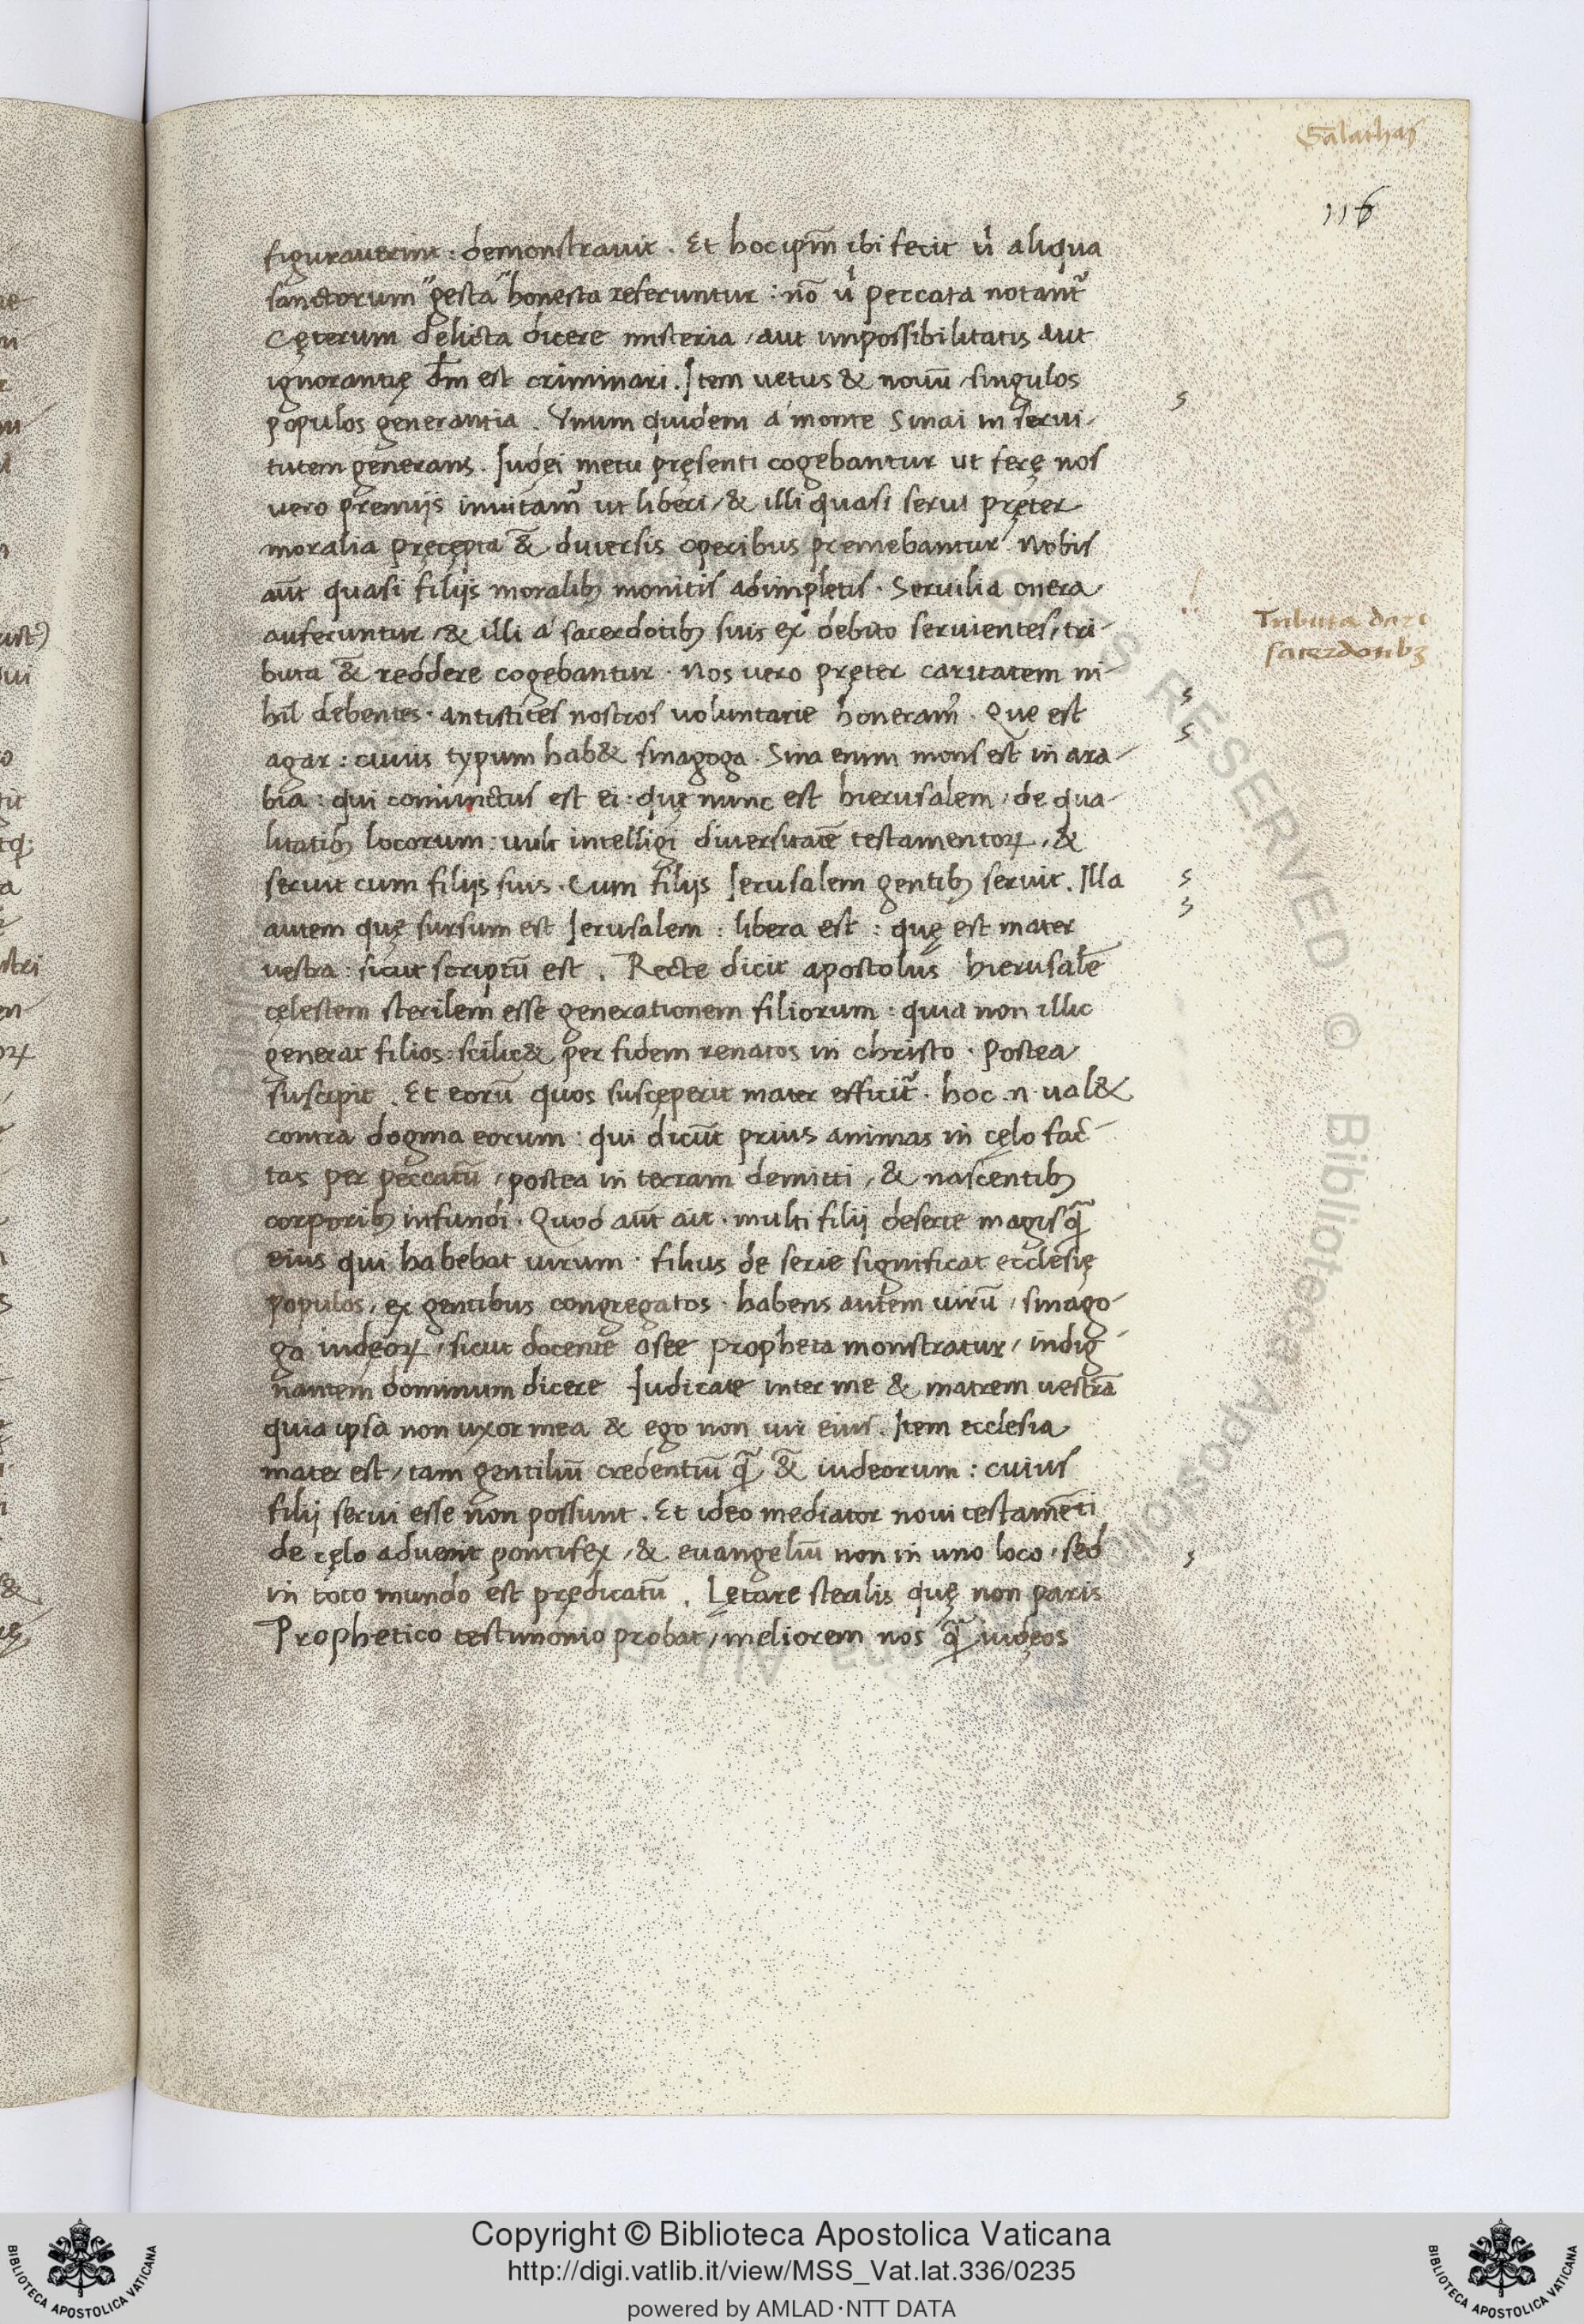 Galathas
116
figurauerint : demonstrauit . Et hoc ipm̃ ibi fecit ů aliqua
sanctorum gesta honesta referuntur : nõ ů peccata notant᷑
Cęterum delicta dicere misteria / aut impossibilitatis aut
ignorantię dm̃ est criminari . Item uetus & nouũ / singulos
populos generantia . Vnum quidem á monte Sinai in serui-
tutem generans . Iudęi metu pręsenti cogebantur ut ferę nos
vero premijs inuitam᷑ ut liberi / & illi quasi serui pręter
moralia pręcępta &̃ diuersis operibus premebantur . Nobis
aũt quasi filijs moralibꝫ monitis adimpletis . Seruilia onera
auferuntur / & illi á sacerdotibꝫ suis ex debito seruientes / tri-
buta &̃ reddere cogebantur . Nos vero pręter caritatem ni-
hil debentes . antistites nostros voluntarie honeram᷑ . Que est
agar : cuius typum hab& sinagoga . Sina enim mons est in ara-
bia : qui coniunctus est ei : quę nunc est hierusalem / de qua-
litatibꝫ locorum : uult intelligi diuersitatẽ testamentoꝝ / &
seruit cum filijs suis . Cum filijs Ierusalem gentibꝫ seruit . Illa
autem quę sursum est Ierusalem : libera est : quę est mater
vestra : sicut scriptũ est . Recte dicit apostolus hierusalẽ
cęlestem sterilem esse generationem filiorum : quia non illic
generat filios : scilic& per fidem renatos in christo . Postea
suscipit . Et eorũ quos suscęperit mater efficit᷑ . hoc .n. ual&
contra dogma eorum : qui dicũt prius animas in cęlo fac-
tas per peccatũ / postea in terram demitti / & nascentibꝫ
corporibꝫ infundi . Quod aũt ait . multi filij deserte magis q̃
eius qui habebat uirum . filius de serie significat ecclesię
populos / ex gentibus congregatos . habens autem uirũ / sinago-
ga iudęoꝝ / sicut docente osee propheta monstratur / indig-
nantem dominum dicere Iudicate inter me & matrem vestrã
quia ipsa non uxor mea & ego non uir eius . Item ecclesia
mater est / tam gentiliũ credentiũ q̃ &̃ iudeorum : cuius
filij serui esse non possunt . Et ideo mediator noui testamẽti
de cęlo aduenit pontifex / & euangeliũ non in uno loco / sed
in toto mundo est prędicatũ . Lętare sterilis quę non paris
Prophetico testimonio probat / meliorem nos q̃ iudęos
Tributa dari
sacerdotibꝫ
Copyright © Biblioteca Apostolica Vaticana
http://digi.vatlib.it/view/MSS_Vat.lat.336/0235
powered by AMLAD·NTT DATA
BIBLIOTECA APOSTOLICA VATICANA
BIBLIOTECA APOSTOLICA VATICANA